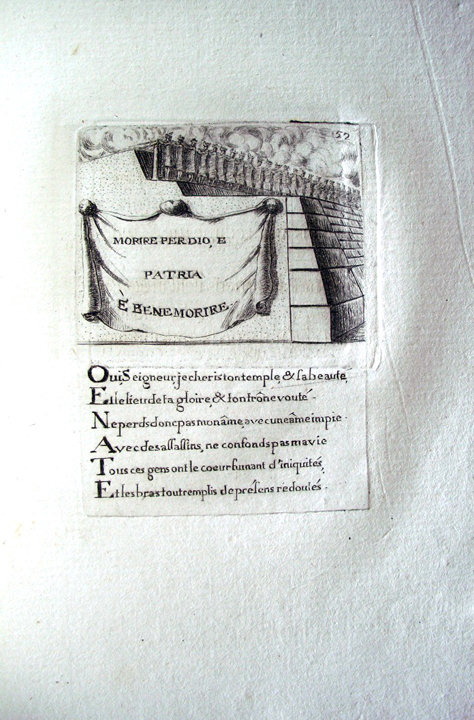 52
MORIRE PER DIO, E
PATRIA
È BENE MORIRE
Oui Seigneur, je cheris ton temple, & sa beauté,
Et le lieu de ta gloire, & ton trône vouté.
Ne perds donc pas mon âme, avec une âme impie.
Avec des assassins, ne confonds pas ma vie
Tous ces gens ont le coeur fumant d'iniquités,
Et les bras tout remplis de présens redoutés.